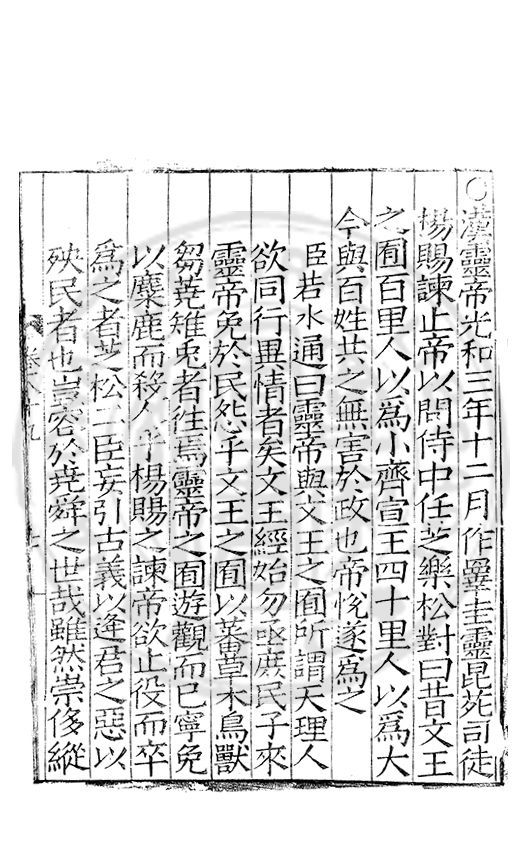 ○漢靈帝光和三年十二月作罼圭靈昆苑司徒
楊賜諫止帝以問侍中任芝樂松對曰昔文王
之囿百里人以爲小齊宣王四十里人以爲大
今與百姓共之無害於政也帝悅遂爲之
臣若水通曰靈帝與文王之囿所謂天理人
欲同行異情者矣文王經始勿亟庶民子來
靈帝免於民怨乎文王之囿以蕃草木鳥獸
芻蕘雉兎者徃焉靈帝之囿遊觀而已寧免
以麋鹿而殺人乎楊賜之諫帝欲止役而卒
爲之者芝松二臣妄引古義以逢君之惡以
殃民者也豈容於堯舜之世哉雖然崇侈縱